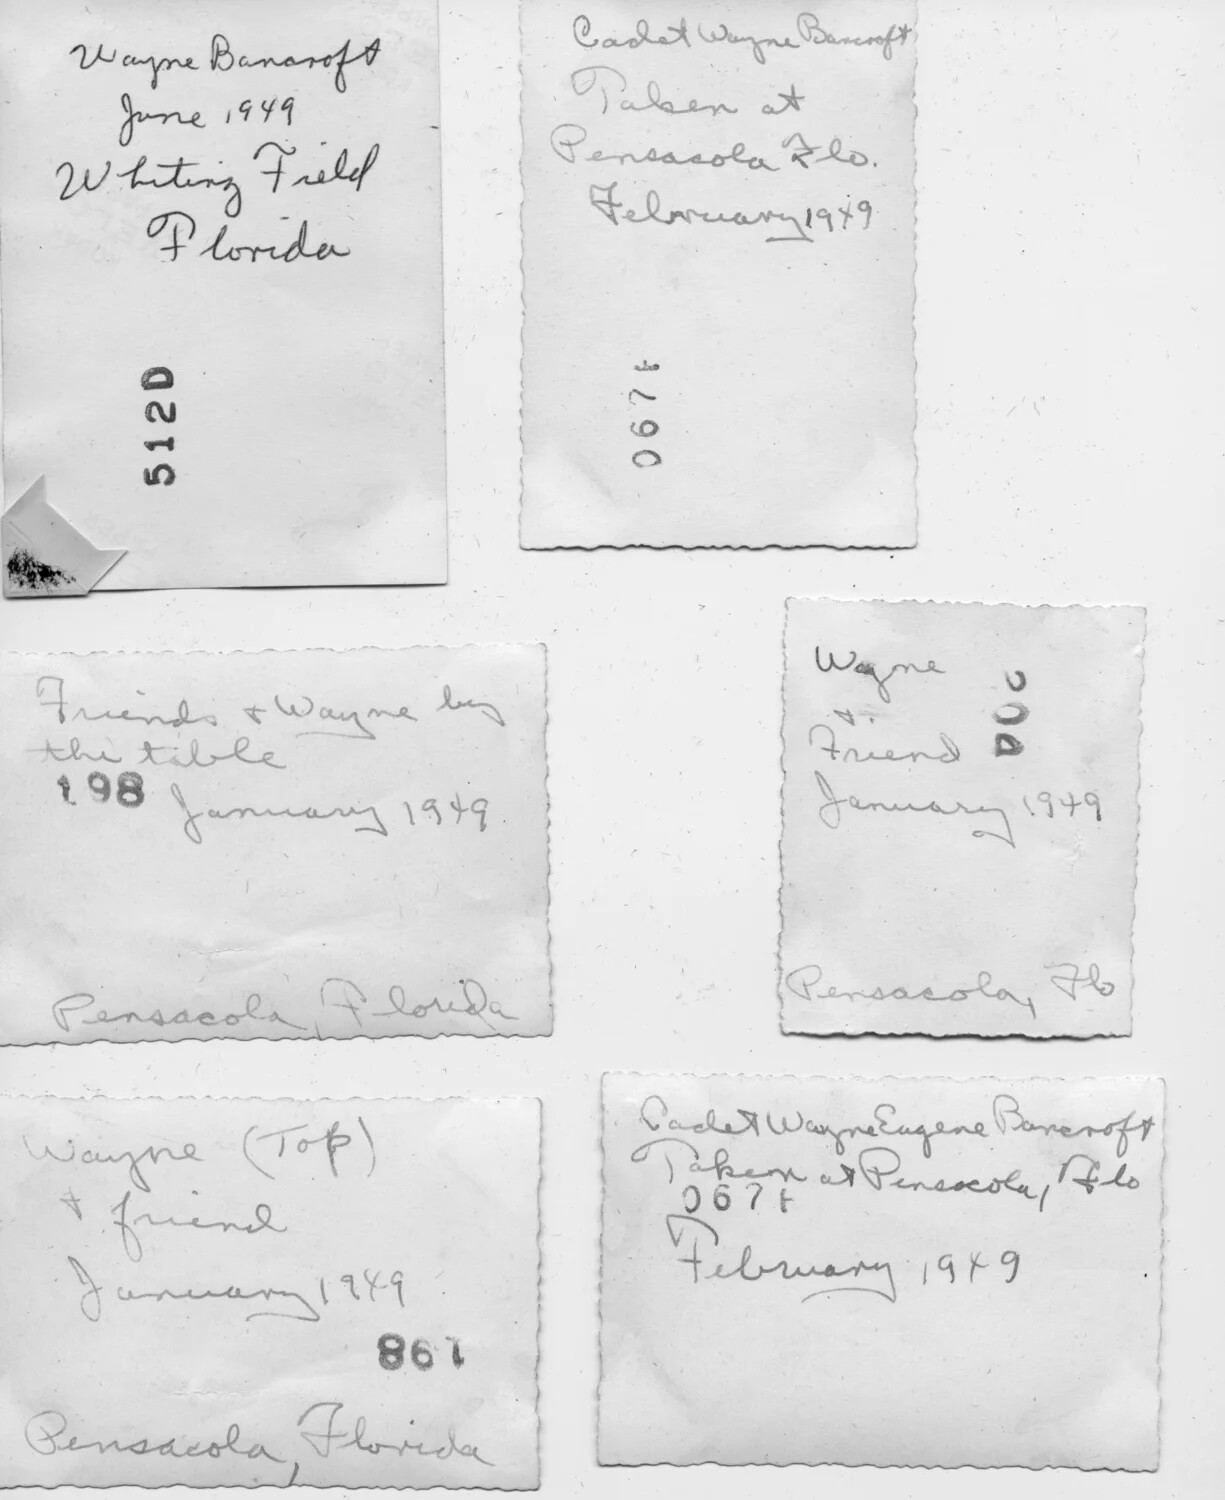 Wayne Bancroft
June 1949
Whiting Field
Florida
512D
Cadet Wayne Bancroft
Taken at
Pensacola Flo.
February 1949
067t
Friends + Wayne by
the table
198
January 1949
Pensacola, Florida
Wayne
+
Friend
January 1949
Pensacola, Flo
Wayne (Top)
+ friend
January 1949
198
Pensacola, Florida
Cadet Wayne Eugene Bancroft
Taken at Pensacola, Flo
067t
February 1949